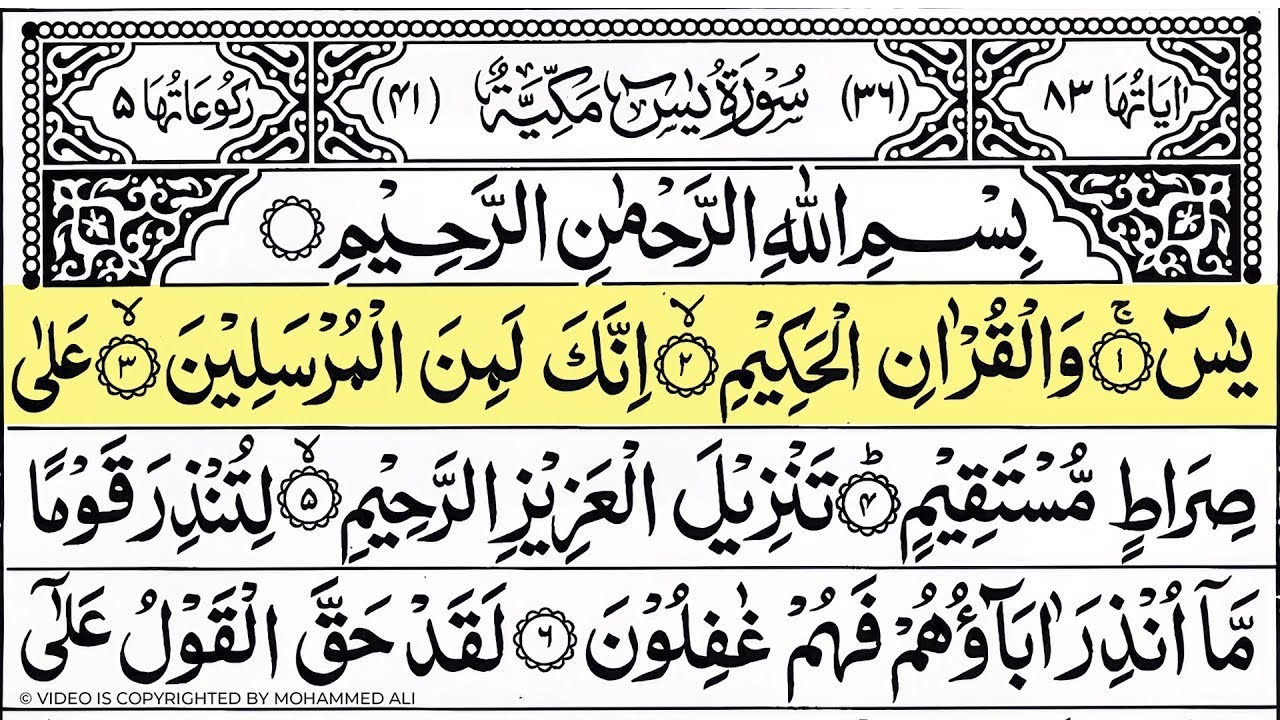 اٰيَاتُهَا ٨٣ (٣٦) سُوْرَةُ يٰسٓ مَكِّيَّةٌ (٤١) رُكُوْعَاتُهَا ۵
بِسْمِ اللّٰهِ الرَّحْمٰنِ الرَّحِيْمِ
يٰسٓ ۚ‏﴿۱﴾ وَالْقُرْاٰنِ الْحَكِيْمِ ۙ‏﴿۲﴾ اِنَّكَ لَمِنَ الْمُرْسَلِيْنَ ۙ‏﴿۳﴾ عَلٰى
صِرَاطٍ مُّسْتَقِيْمٍ ؕ‏﴿۴﴾ تَنْزِيْلَ الْعَزِيْزِ الرَّحِيْمِ ۙ‏﴿۵﴾ لِتُنْذِرَ قَوْمًا
مَّاۤ اُنْذِرَ اٰبَآؤُهُمْ فَهُمْ غٰفِلُوْنَ ﴿۶﴾ لَقَدْ حَقَّ الْقَوْلُ عَلٰٓى
© VIDEO IS COPYRIGHTED BY MOHAMMED ALI